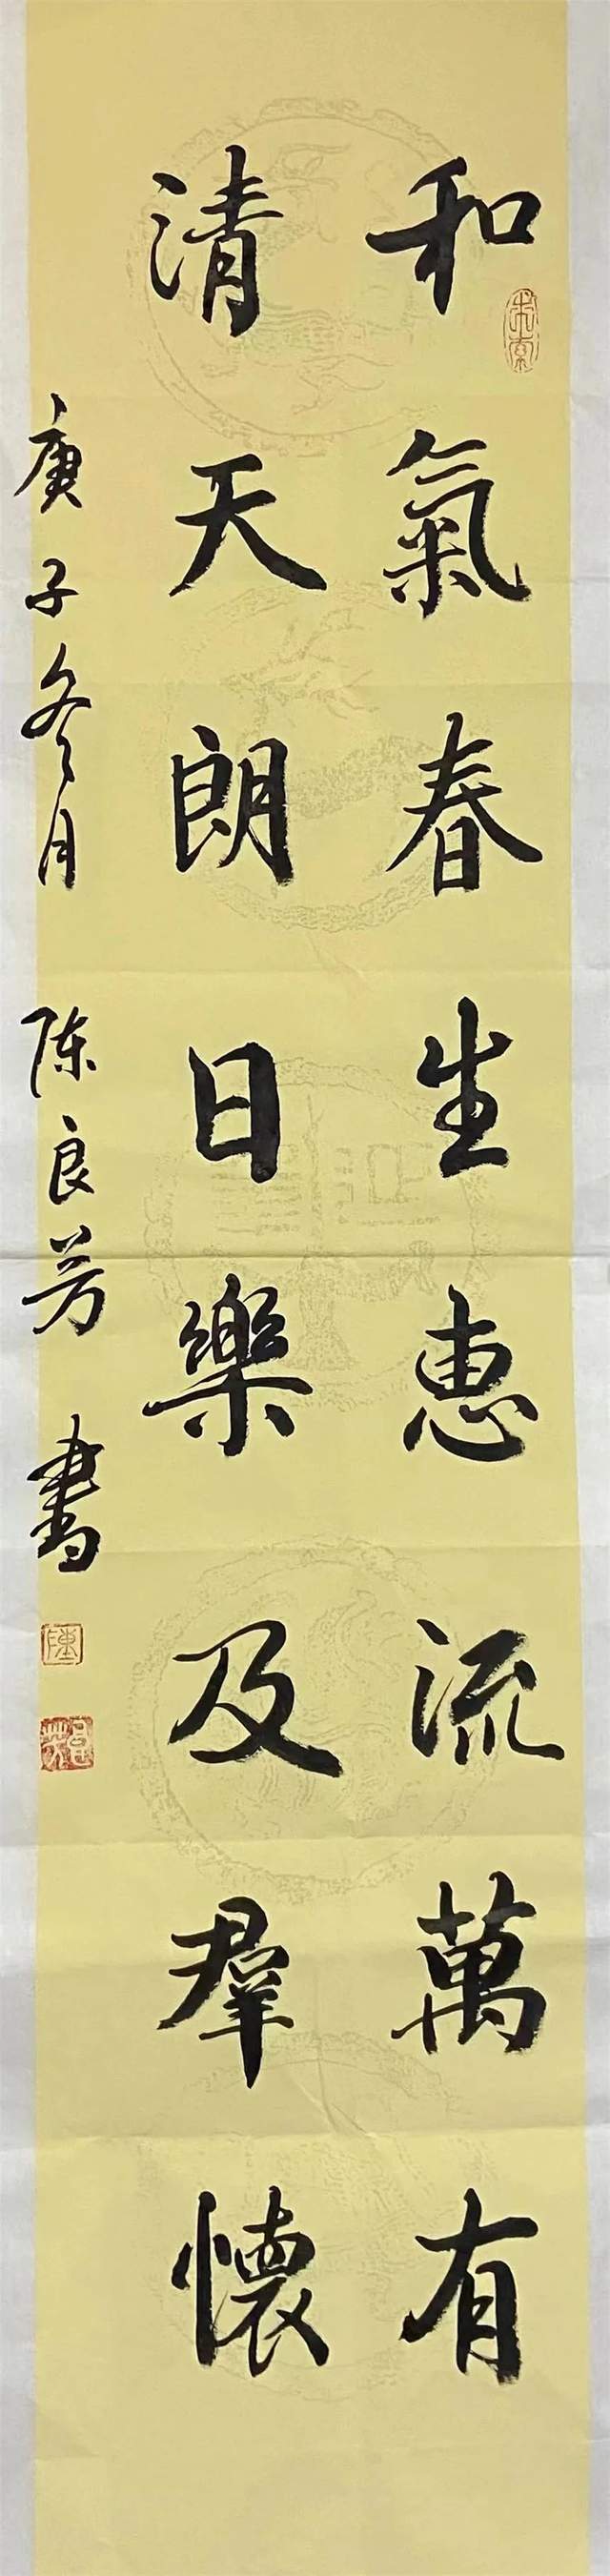 和氣春生惠流萬有
清天朗日樂及羣懷
庚子冬月 陈良芳 書
陳